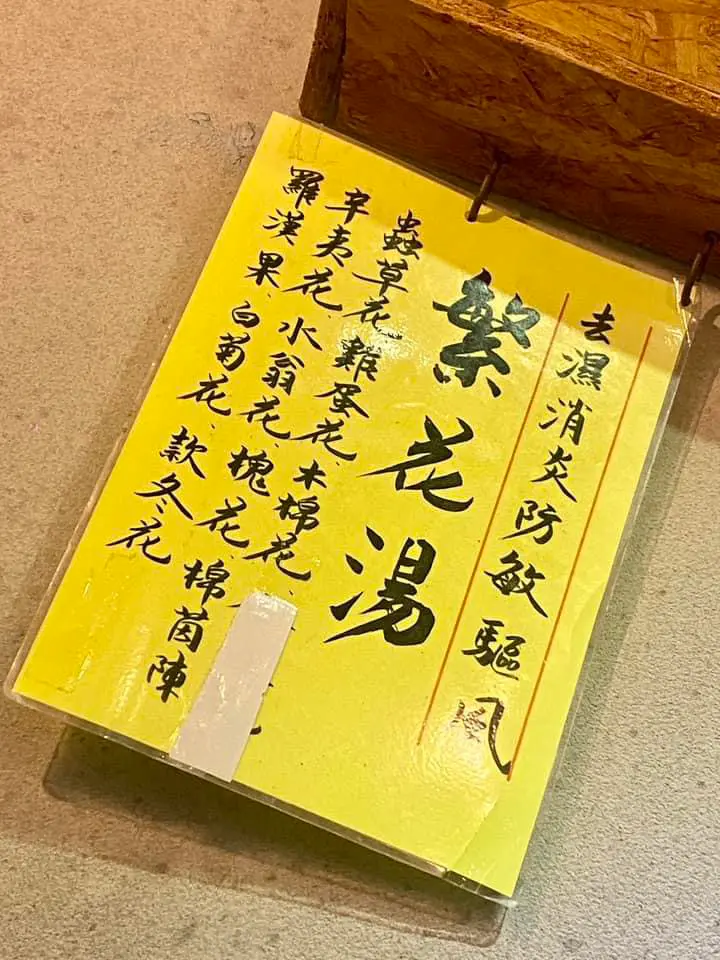 去濕消炎防敏驅風
繁花湯
蟲草花、雞蛋花、木棉花、
辛夷花、水翁花、槐花、棉茵陳
羅漢果、白菊花、款冬花